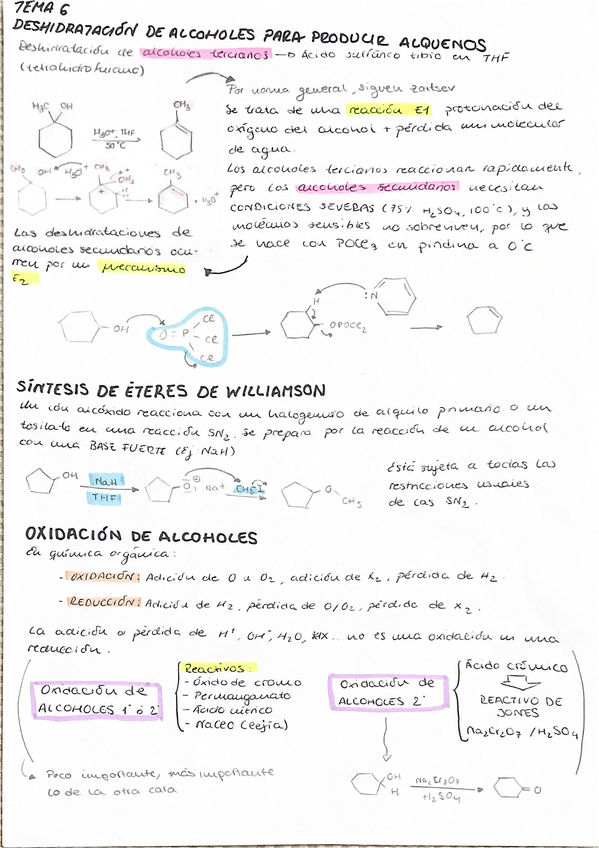 TEMA 6
DESHIDRATACIÓN DE ALCOHOLES PARA PRODUCIR ALQUENOS
Deshidratación de alcoholes terciarios → Ácido sulfúrico tibio en THF
(tetrahidrofurano)
Por norma general, siguen Zaitsev
Se trata de una reacción E1 protonación del
oxígeno del alcohol + pérdida una molécular
de agua.
Los alcoholes terciarios reaccionan rapidamente,
pero los alcoholes secundarios necesitan
CONDICIONES SEVERAS (75% H2SO4, 100°C), y las
moléculas sensibles no sobreviven, por lo que
se hace con POCl3 en piridina a 0°C
H3C OH
H3O+, THF
50°C
CH3
CH3 OH H3O+ CH3 OH2 CH3 + H2O
Las deshidrataciones de
alcoholes secundarios ocu-
rren por un mecanismo
E2
OH O=P Cl Cl Cl H OPOCl2 :N
SÍNTESIS DE ÉTERES DE WILLIAMSON
Un ión alcóxido reacciona con un halogenuro de alquilo primario o un
tosilato en una reacción SN2. Se prepara por la reacción de un alcohol
con una BASE FUERTE (Ej NaH)
OH NaH THF O Na+ CH3-I O CH3
Está sujeta a todas las
restricciones usuales
de las SN2.
OXIDACIÓN DE ALCOHOLES
En química orgánica:
- OXIDACIÓN: Adición de O u O2, adición de X2, pérdida de H2.
- REDUCCIÓN: Adición de H2, pérdida de O/O2, pérdida de X2.
La adición o pérdida de H+, OH-, H2O, HX... no es una oxidación ni una
reducción.
Oxidación de
ALCOHOLES 1° ó 2°
Reactivos:
- Óxido de cromo
- Permanganato
- Ácido nítrico
- NaClO (lejía)
Poco importante, más importante
lo de la otra cara
Oxidación de
ALCOHOLES 2°
Ácido crómico
REACTIVO DE
JONES
Na2Cr2O7 / H2SO4
OH H Na2Cr2O7 H2SO4 O